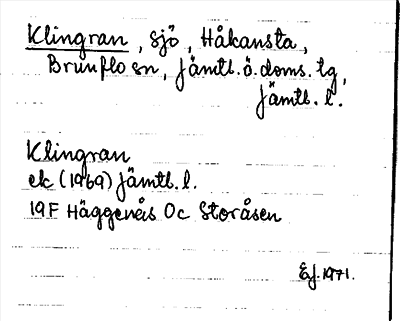 Klingran, sjö, Håkansta,
Brunflo sn, Jämtl. ö. doms. tg,
Jämtl. l.
Klingran
ek (1969) Jämtl. l.
19F Häggenås Oc Storåsen
1971.